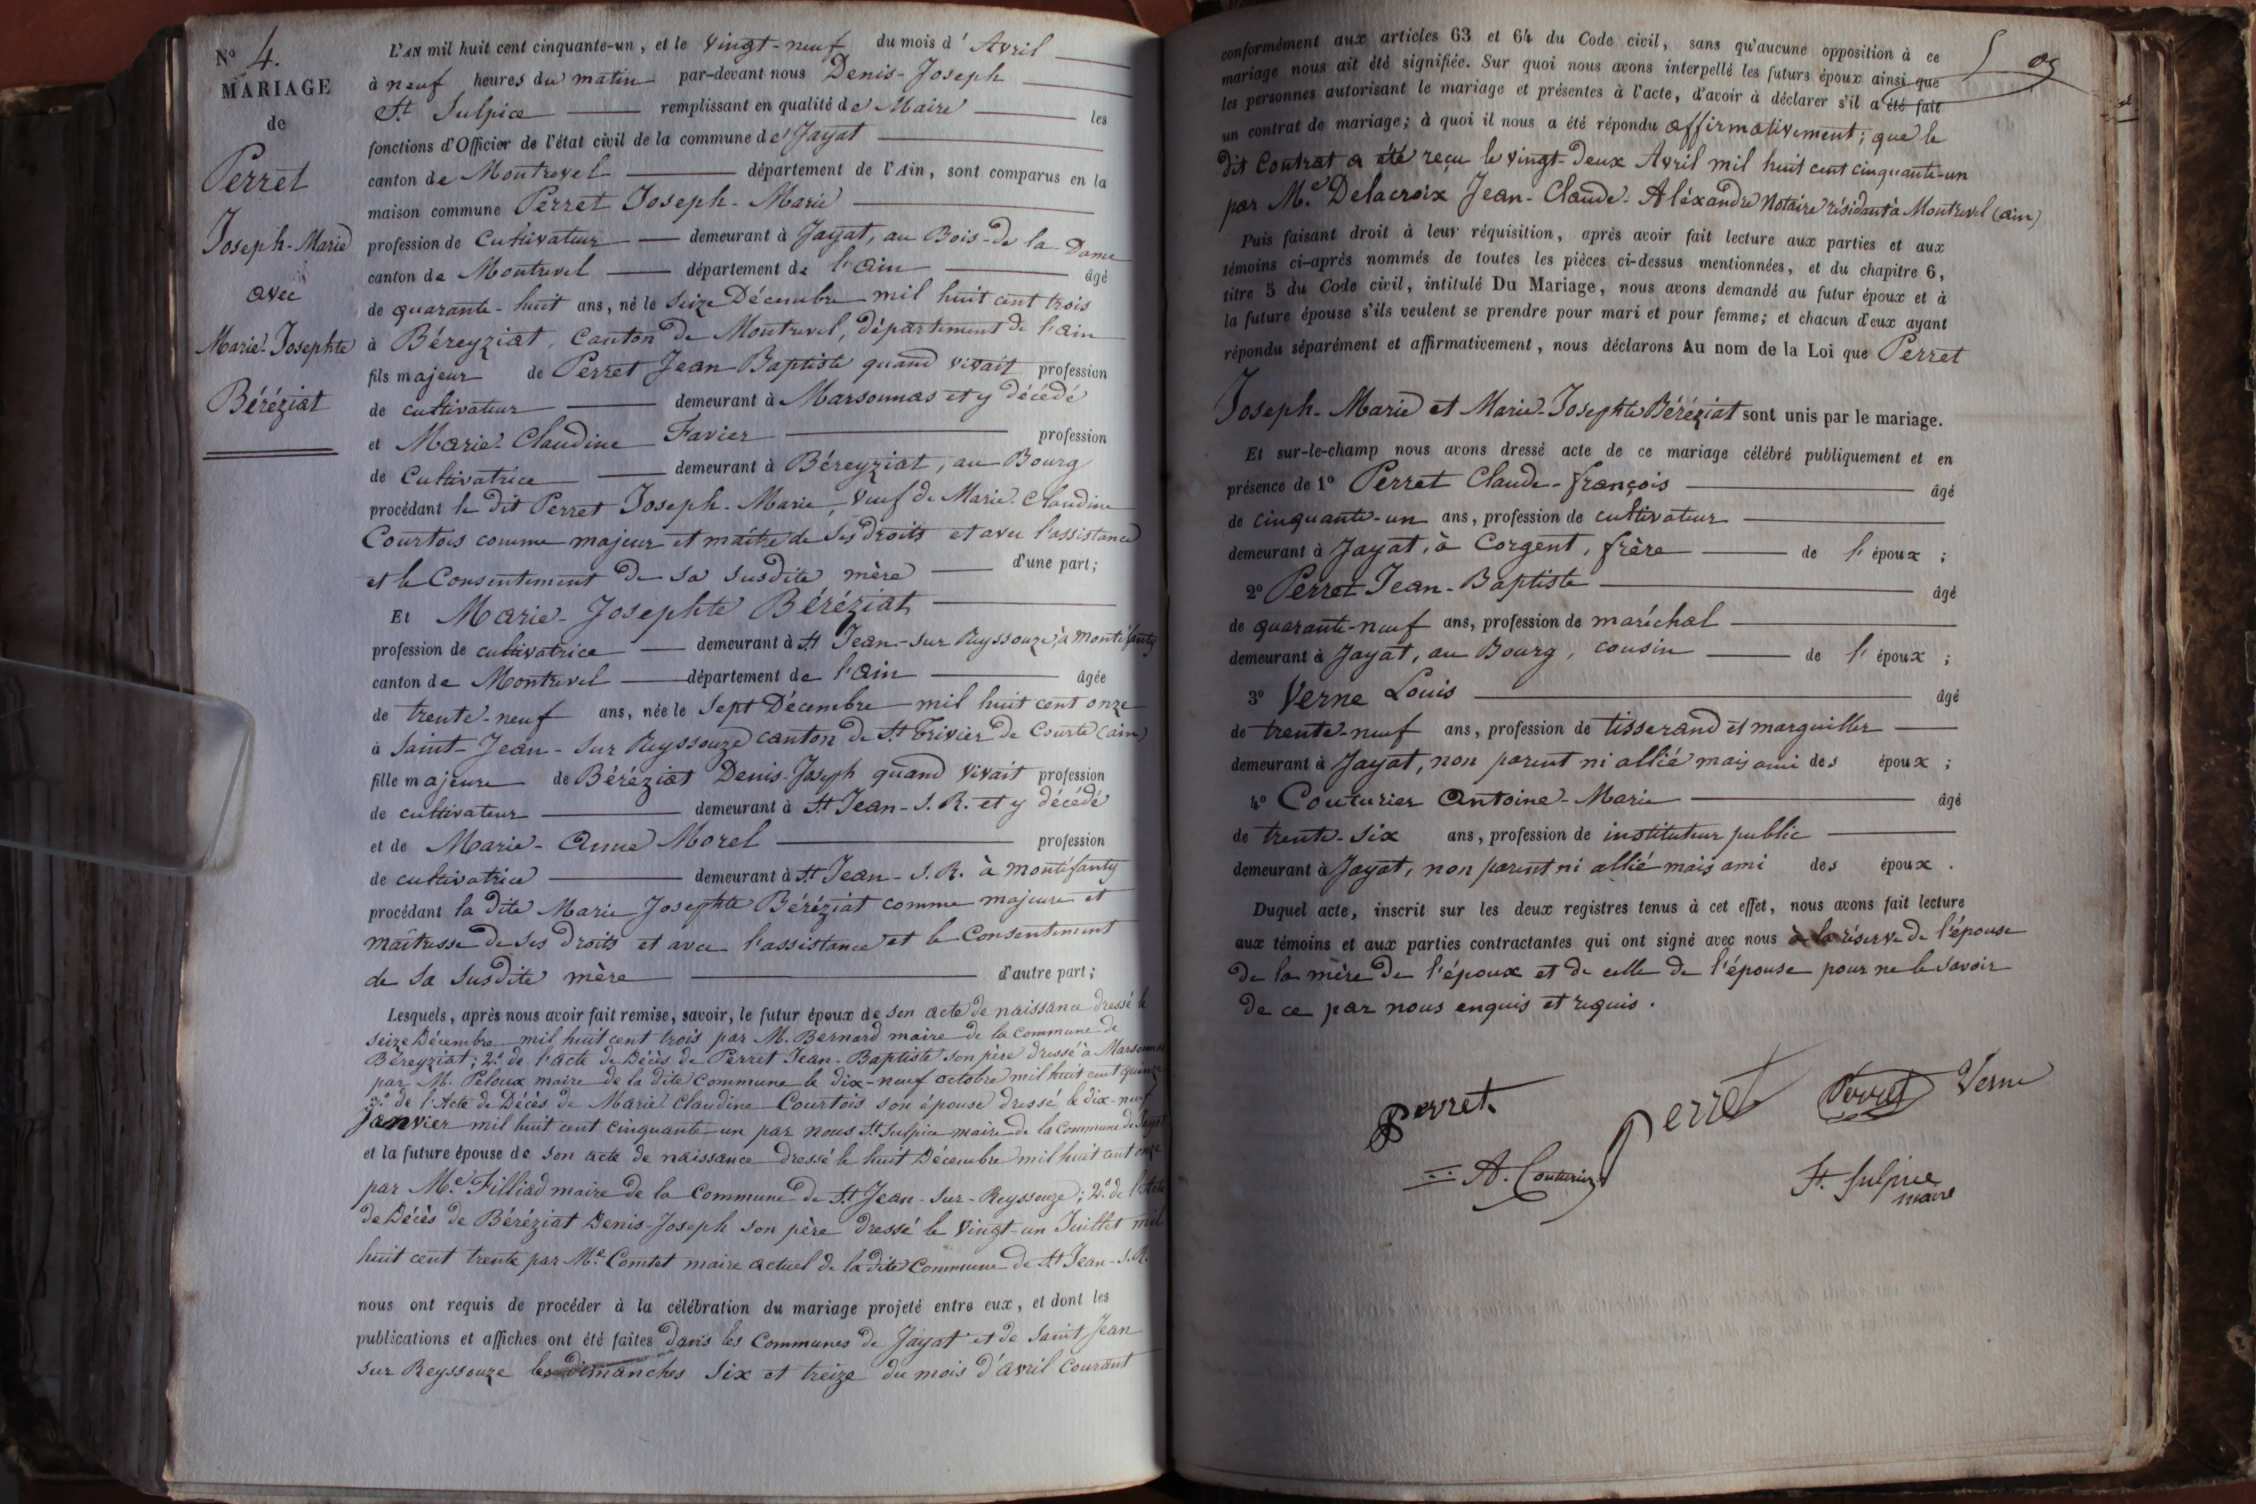 N° 4.
MARIAGE
de
Perret
Joseph-Marie
avec
Marie-Josephte
Béréziat
L'AN mil huit cent cinquante-un, et le vingt-neuf du mois d'Avril
à neuf heures du matin par-devant nous Denis-Joseph
St. Sulpice remplissant en qualité de Maire les
fonctions d'Officier de l'état civil de la commune de Jayat
canton de Montrevel département de l'Ain, sont comparus en la
maison commune Perret Joseph-Marie
profession de Cultivateur demeurant à Jayat, au Bois-de la Dame
canton de Montrevel département de l'ain âgé
de quarante-huit ans, né le seize Décembre mil huit cent trois
à Béreyziat, canton de Montrevel, département de l'ain
fils majeur de Perret Jean Baptiste quand vivait profession
de cultivateur demeurant à Marsonnas et y décédé
et Marie-Claudine Favier profession
de Cultivatrice demeurant à Béreyziat, au Bourg
procédant le dit Perret Joseph-Marie, veuf de Marie-Claudine
Courtois comme majeur et maître de ses droits et avec l'assistance
et le Consentement de sa susdite mère d'une part;
Et Marie-Josephte Béréziat
profession de cultivatrice demeurant à St Jean-sur Reyssouze, à montéfanty
canton de Montrevel département de l'ain âgée
de trente-neuf ans, née le sept Décembre mil huit cent onze
à Saint-Jean-sur Reyssouze canton de St. Trivier de Courte (ain)
fille majeure de Béréziat Denis-Joseph quand vivait profession
de cultivateur demeurant à St Jean-S. R. et y décédé
et de Marie-Anne Morel profession
de cultivatrice demeurant à St. Jean-S. R. à montéfanty
procédant la dite Marie Josephte Béréziat comme majeure et
maîtresse de ses droits et avec l'assistance et le Consentement
de sa susdite mère d'autre part;
Lesquels, après nous avoir fait remise, savoir, le futur époux de son acte de naissance dressé le
seize Décembre mil huit cent trois par M. Bernard maire de la commune de
Béreyziat; 2° de l'acte de Décès de Perret Jean-Baptiste son père dressé à Marsonnas
par M. Peloux maire de la dite commune le dix-neuf octobre mil huit cent quinze
3° de l'Acte de Décès de Marie Claudine Courtois son épouse dressé le dix-neuf
janvier mil huit cent cinquante-un par nous St Sulpice maire de la commune de Jayat
et la future épouse de son acte de naissance dressé le huit Décembre mil huit cent onze
par Me. Filliad maire de la commune de St Jean-sur-Reyssouze; 2° de l'Acte
de Décès de Béréziat Denis-Joseph son père dressé le vingt-un Juillet mil
huit cent trente par Me. Comtet maire actuel de la dite Commune de St Jean-S. R.
nous ont requis de procéder à la célébration du mariage projeté entre eux, et dont les
publications et affiches ont été faites dans les Communes de Jayat et de Saint Jean
sur Reyssouze les dimanches six et treize du mois d'avril courant
conformément aux articles 63 et 64 du Code civil, sans qu'aucune opposition à ce
mariage nous ait été signifiée. Sur quoi nous avons interpellé les futurs époux ainsi que
les personnes autorisant le mariage et présentes à l'acte, d'avoir à déclarer s'il a été fait
un contrat de mariage; à quoi il nous a été répondu affirmativement; que le
dit Contrat a été reçu le vingt-deux Avril mil huit cent cinquante-un
par Me. Delacroix Jean-Claude-Aléxandre Notaire résidant à Montrevel (ain)
Puis faisant droit à leur réquisition, après avoir fait lecture aux parties et aux
témoins ci-après nommés de toutes les pièces ci-dessus mentionnées, et du chapitre 6,
titre 5 du Code civil, intitulé Du Mariage, nous avons demandé au futur époux et à
la future épouse s'ils veulent se prendre pour mari et pour femme; et chacun d'eux ayant
répondu séparément et affirmativement, nous déclarons Au nom de la Loi que Perret
Joseph-Marie et Marie-Josephte Béréziat sont unis par le mariage.
Et sur-le-champ nous avons dressé acte de ce mariage célébré publiquement et en
présence de 1° Perret Claude-françois âgé
de cinquante-un ans, profession de cultivateur
demeurant à Jayat, à Corgent, frère de l'époux;
2° Perret Jean-Baptiste âgé
de quarante-neuf ans, profession de maréchal
demeurant à Jayat, au Bourg, cousin de l'époux;
3° Verne Louis âgé
de trente-neuf ans, profession de tisserand et marguiller
demeurant à Jayat, non parent ni allié mais ami des époux;
4° Couturier Antoine-Marie âgé
de trente-six ans, profession de instituteur public
demeurant à Jayat, non parent ni allié mais ami des époux.
Duquel acte, inscrit sur les deux registres tenus à cet effet, nous avons fait lecture
aux témoins et aux parties contractantes qui ont signé avec nous à la réserve de l'épouse
de la mère de l'époux et de celle de l'épouse pour ne le savoir
de ce par nous enquis et requis.
Perret. Perret Perret Verne
A. Couturier St. Sulpice
maire